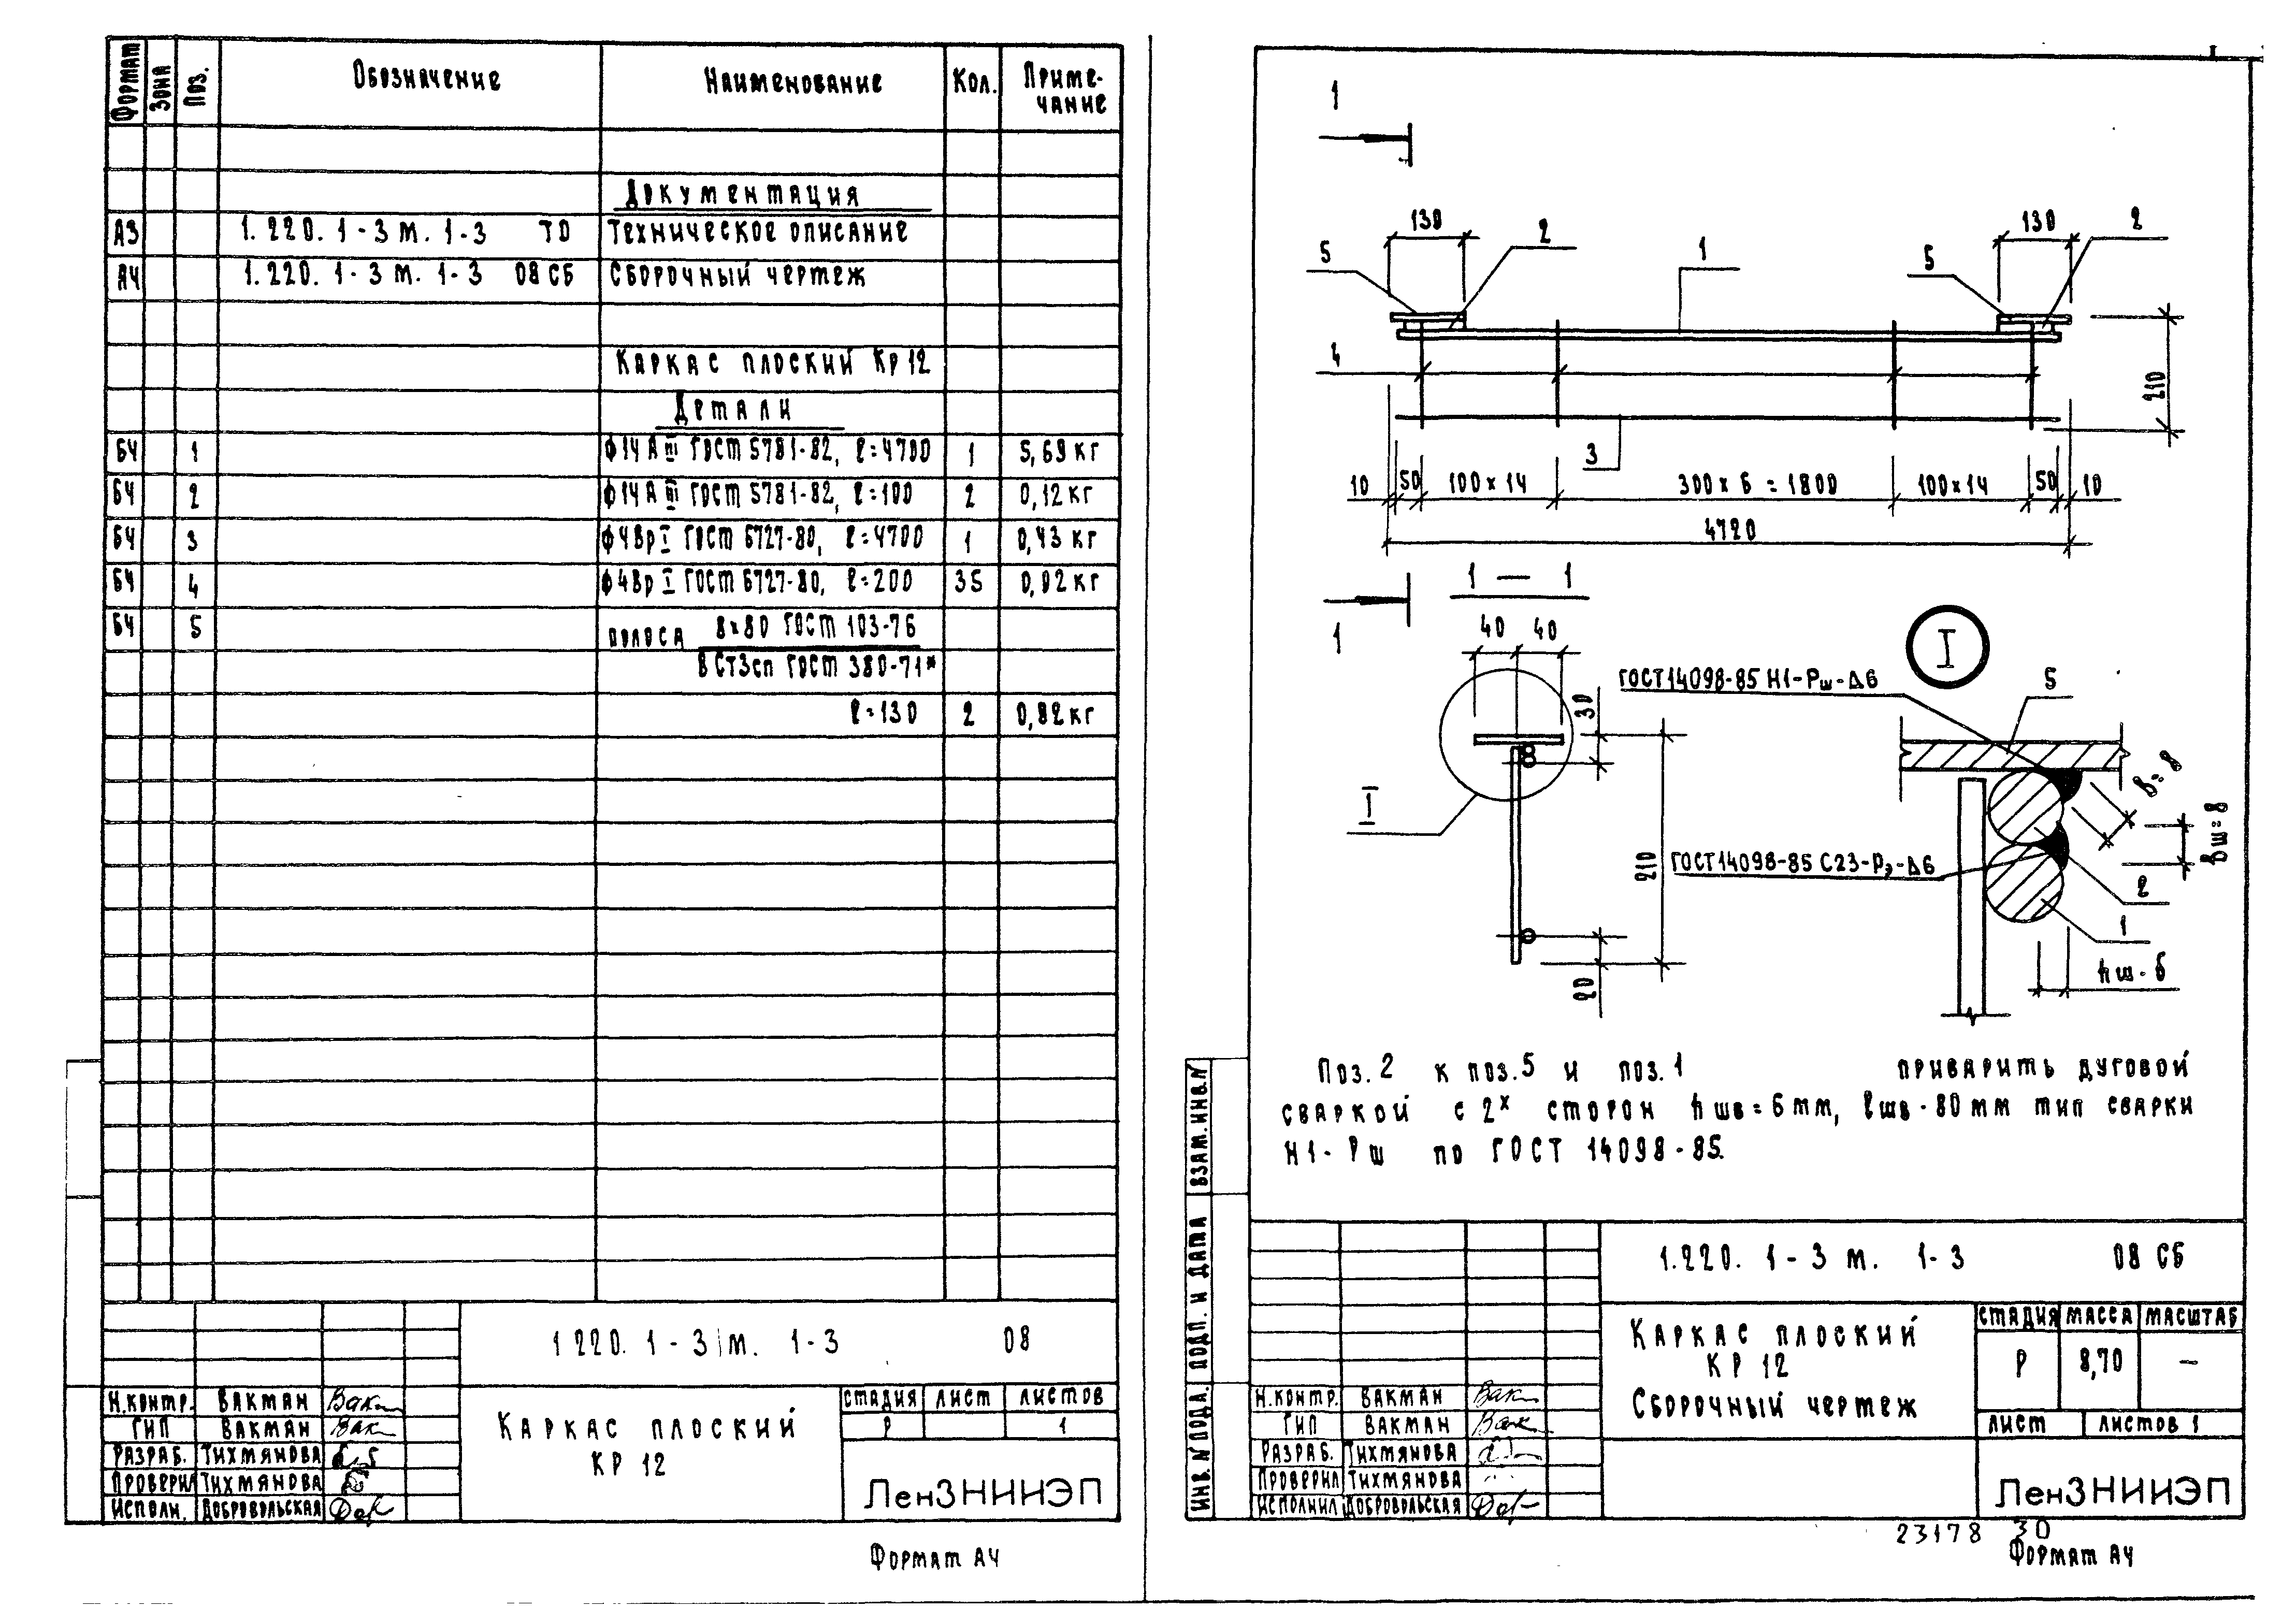 Формат
Зона
Поз.
Обозначение
Наименование
Кол.
Приме-
чание
Документация
А3 1.220.1-3м.1-3 ТО Техническое описание
А4 1.220.1-3м.1-3 08СБ Сборочный чертеж
Каркас плоский Кр12
Детали
БЧ 1 ф14АIII ГОСТ 5781-82, ℓ=4700 1 5,69кг
БЧ 2 ф14АIII ГОСТ 5781-82, ℓ=100 2 0,12кг
БЧ 3 ф4ВрI ГОСТ 6727-80, ℓ=4700 1 0,43кг
БЧ 4 ф4ВрI ГОСТ 6727-80, ℓ=200 35 0,02кг
БЧ 5 полоса 8х80 ГОСТ 103-76
ВСт3сп ГОСТ 380-71*
ℓ=130 2 0,82кг
1 220. 1-3 м. 1-3 08
Н.контр. Вакман
ГИП Вакман
Разраб. Тихмянова
Проверил Тихмянова
Исполн. Добровольская
Каркас плоский
КР 12
Стадия Лист Листов
Р 1
ЛенЗНИИЭП
Формат А4
1
130
2
5
1
5
130
2
4
210
3
10 50 100х14 300х6=1800 100х14 50 10
4720
1 — 1
1
40 40
I
ГОСТ14098-85 Н1-Рш-Δ6
5
30
I
210
20
в=8
вш=8
ГОСТ14098-85 С23-Рэ-Δ6
2
1
hш-6
Поз.2 к поз.5 и поз.1 приварить дуговой
сваркой с 2х сторон hшв=6мм, ℓшв-80мм тип сварки
Н1-Рш по ГОСТ 14098-85.
Взам.инв.№
Подп. и дата
Инв.№ подл.
1.220. 1-3 м. 1-3 08 СБ
Каркас плоский
КР 12
Сборочный чертеж
Стадия Масса Масштаб
Р 8,70 —
Лист Листов 1
Н.контр. Вакман
ГИП Вакман
Разраб. Тихмянова
Проверил Тихмянова
Исполнил Добровольская
ЛенЗНИИЭП
23178 30
Формат А4